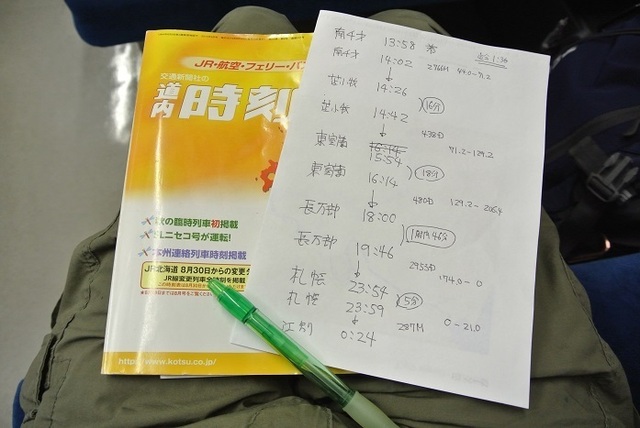 JR・航空・フェリー・バ
交通新聞社の
道内時刻
秋の臨時列車初掲載
SLニセコ号が運転!
本州連絡列車時刻掲載
JR北海道 8月30日からの変更
JR線変更列車全時刻を掲載
http://www.kotsu.co.jp/
南千才 13:58 着
南千才 14:02 2766M 44.0-71.2
↓
苫小牧 14:26
16分
苫小牧 14:42
↓ 438D 71.2-129.2
東室蘭 16:14
15:54
18分
東室蘭 16:14
↓ 480D 129.2-206.4
長万部 18:00
1時間46分
長万部 19:46
↓ 2955D 174.0-0
札幌 23:54
5分
札幌 23:59
↓ 287M 0-21.0
江別 0:24